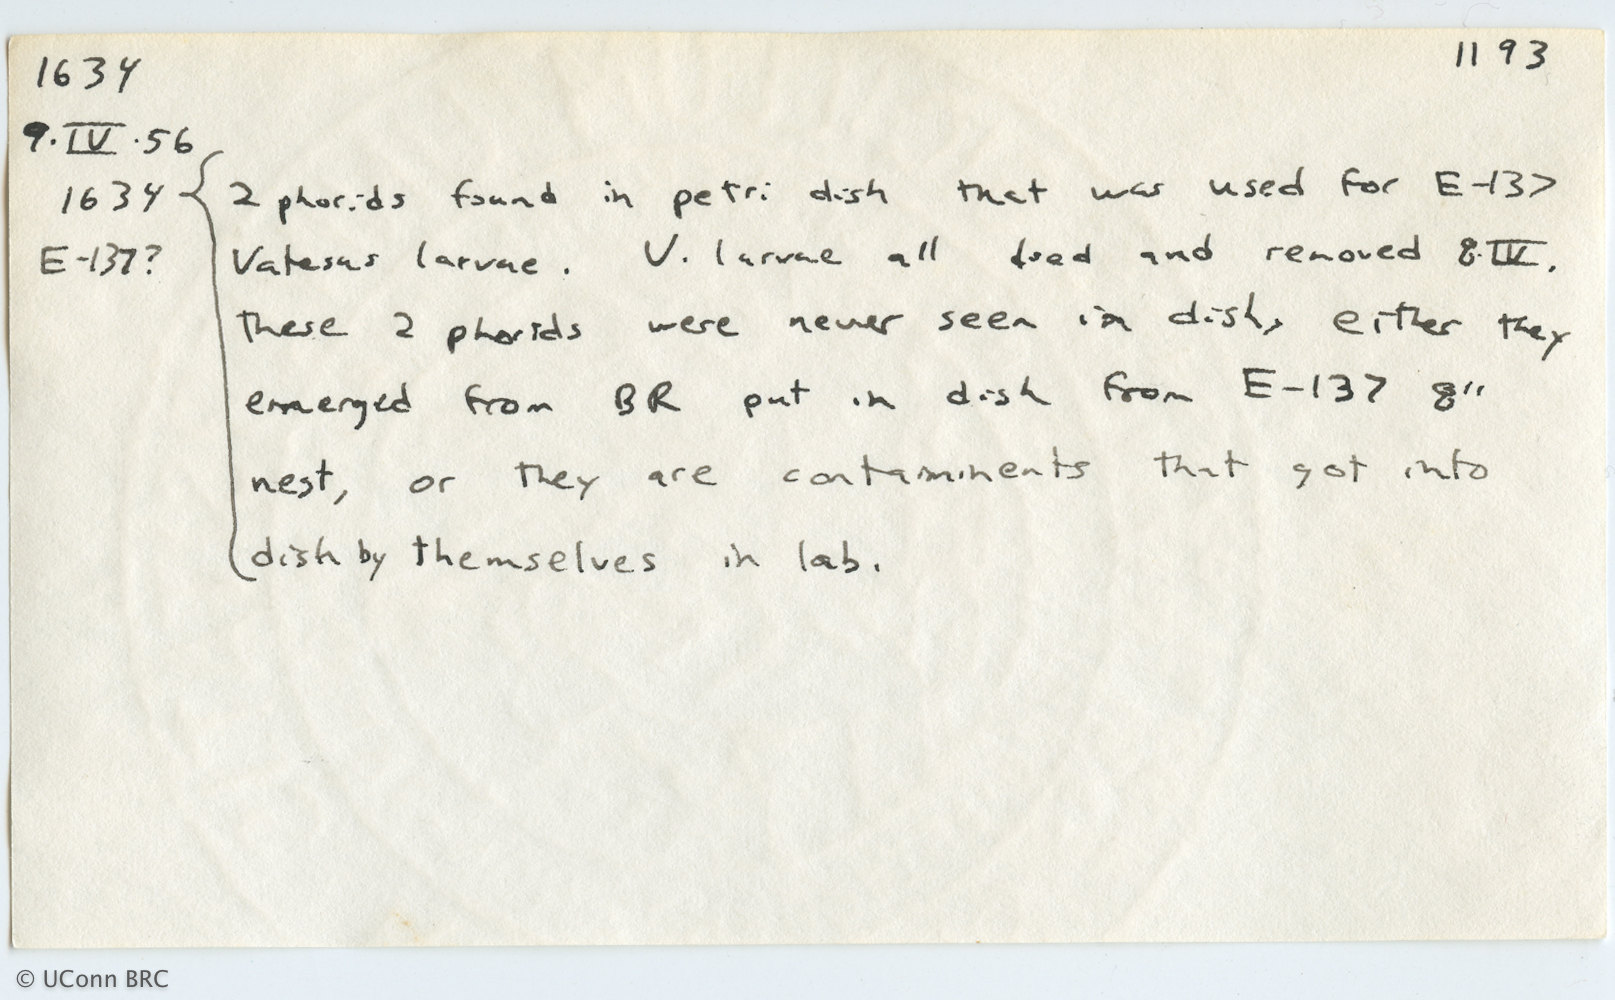 1634
1193
9.IV.56
1634 { 2 phorids found in petri dish that was used for E-137
E-137? Vatesus larvae. V. larvae all dead and removed 8.IV.
These 2 phorids were never seen in dish, either they
emerged from BR put in dish from E-137 8"
nest, or they are contaminents that got into
dish by themselves in lab.
© UConn BRC